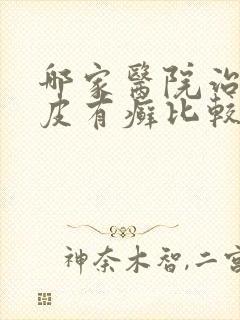 邮家醫院治
皮有癬比較
神奈木智,二宮